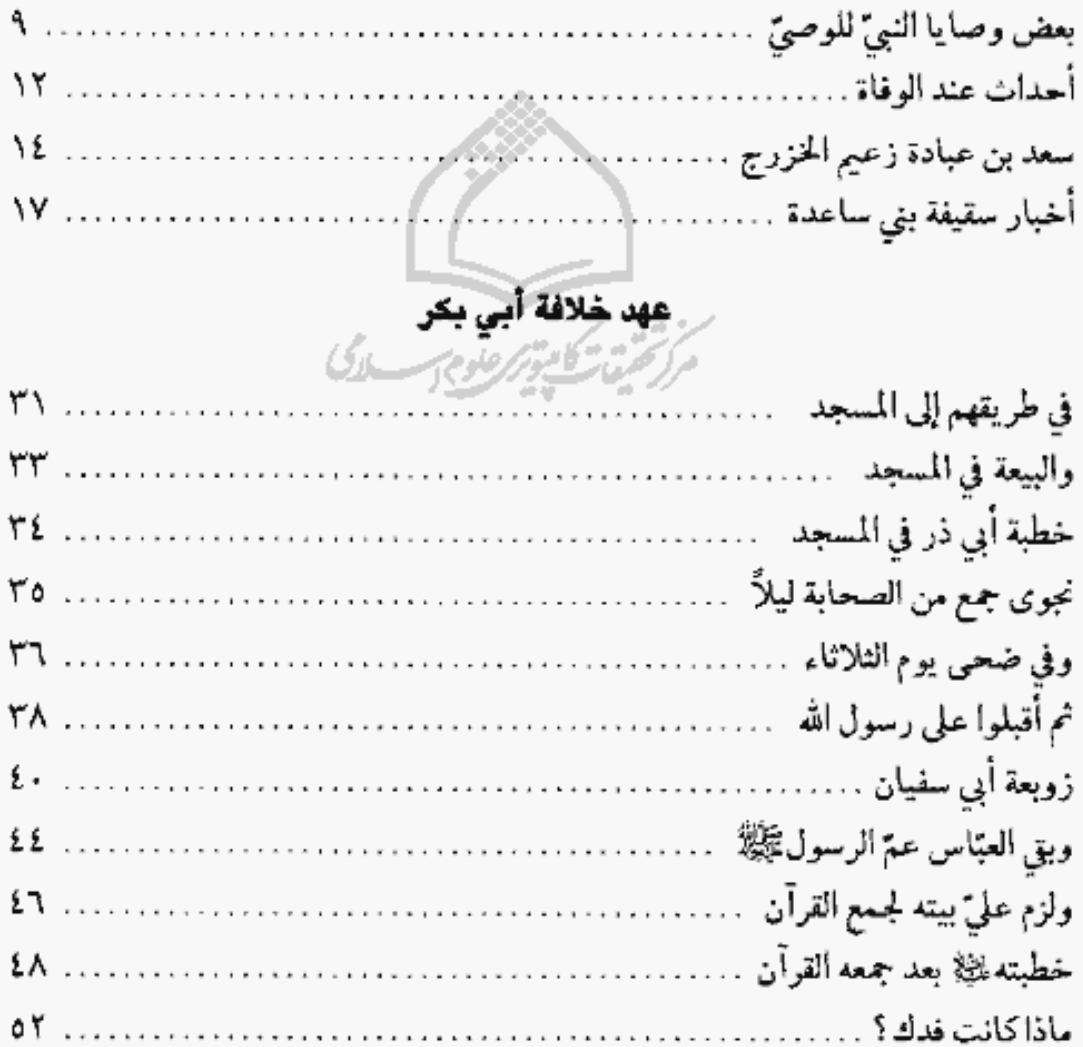 بعض وصايا النبيّ للوصيّ ........................ ٩
أحداث عند الوفاة ........................ ١٢
سعد بن عبادة زعيم الخزرج ........................ ١٤
أخبار سقيفة بني ساعدة ........................ ١٧
عهد خلافة أبي بكر
مرکز تحقیقات کامپیوتری علوم اسلامی
في طريقهم إلى المسجد ........................ ٣١
والبيعة في المسجد ........................ ٣٣
خطبة أبي ذر في المسجد ........................ ٣٤
نجوى جمع من الصحابة ليلاً ........................ ٣٥
وفي ضحى يوم الثلاثاء ........................ ٣٦
ثم أقبلوا على رسول الله ........................ ٣٨
زوبعة أبي سفيان ........................ ٤٠
وبقي العبّاس عمّ الرسول ﷺ ........................ ٤٤
ولزم عليّ بيته لجمع القرآن ........................ ٤٦
خطبته عليه السلام بعد جمعه القرآن ........................ ٤٨
ماذا كانت فدك؟ ........................ ٥٢